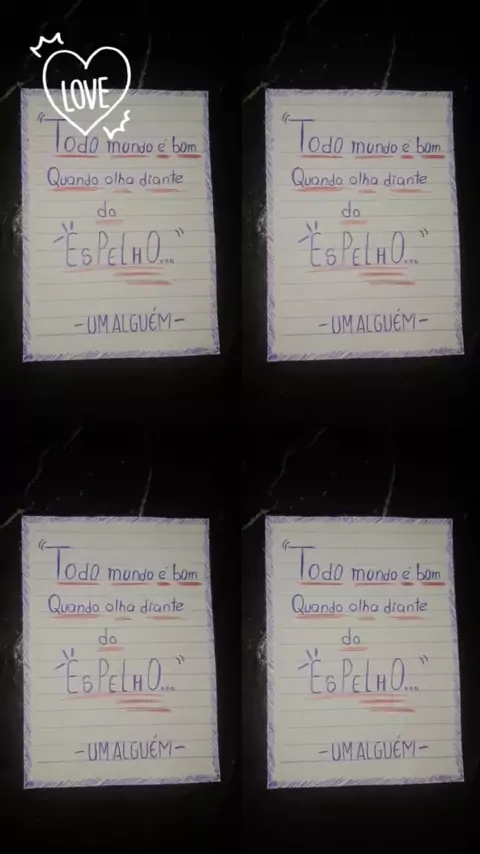 LOVE
"Todo mundo é bom
Quando olha diante
do
"ESPELHO..."
-UM ALGUÉM-
"Todo mundo é bom
Quando olha diante
do
"ESPELHO..."
-UM ALGUÉM-
"Todo mundo é bom
Quando olha diante
do
"ESPELHO..."
-UM ALGUÉM-
"Todo mundo é bom
Quando olha diante
do
"ESPELHO..."
-UM ALGUÉM-